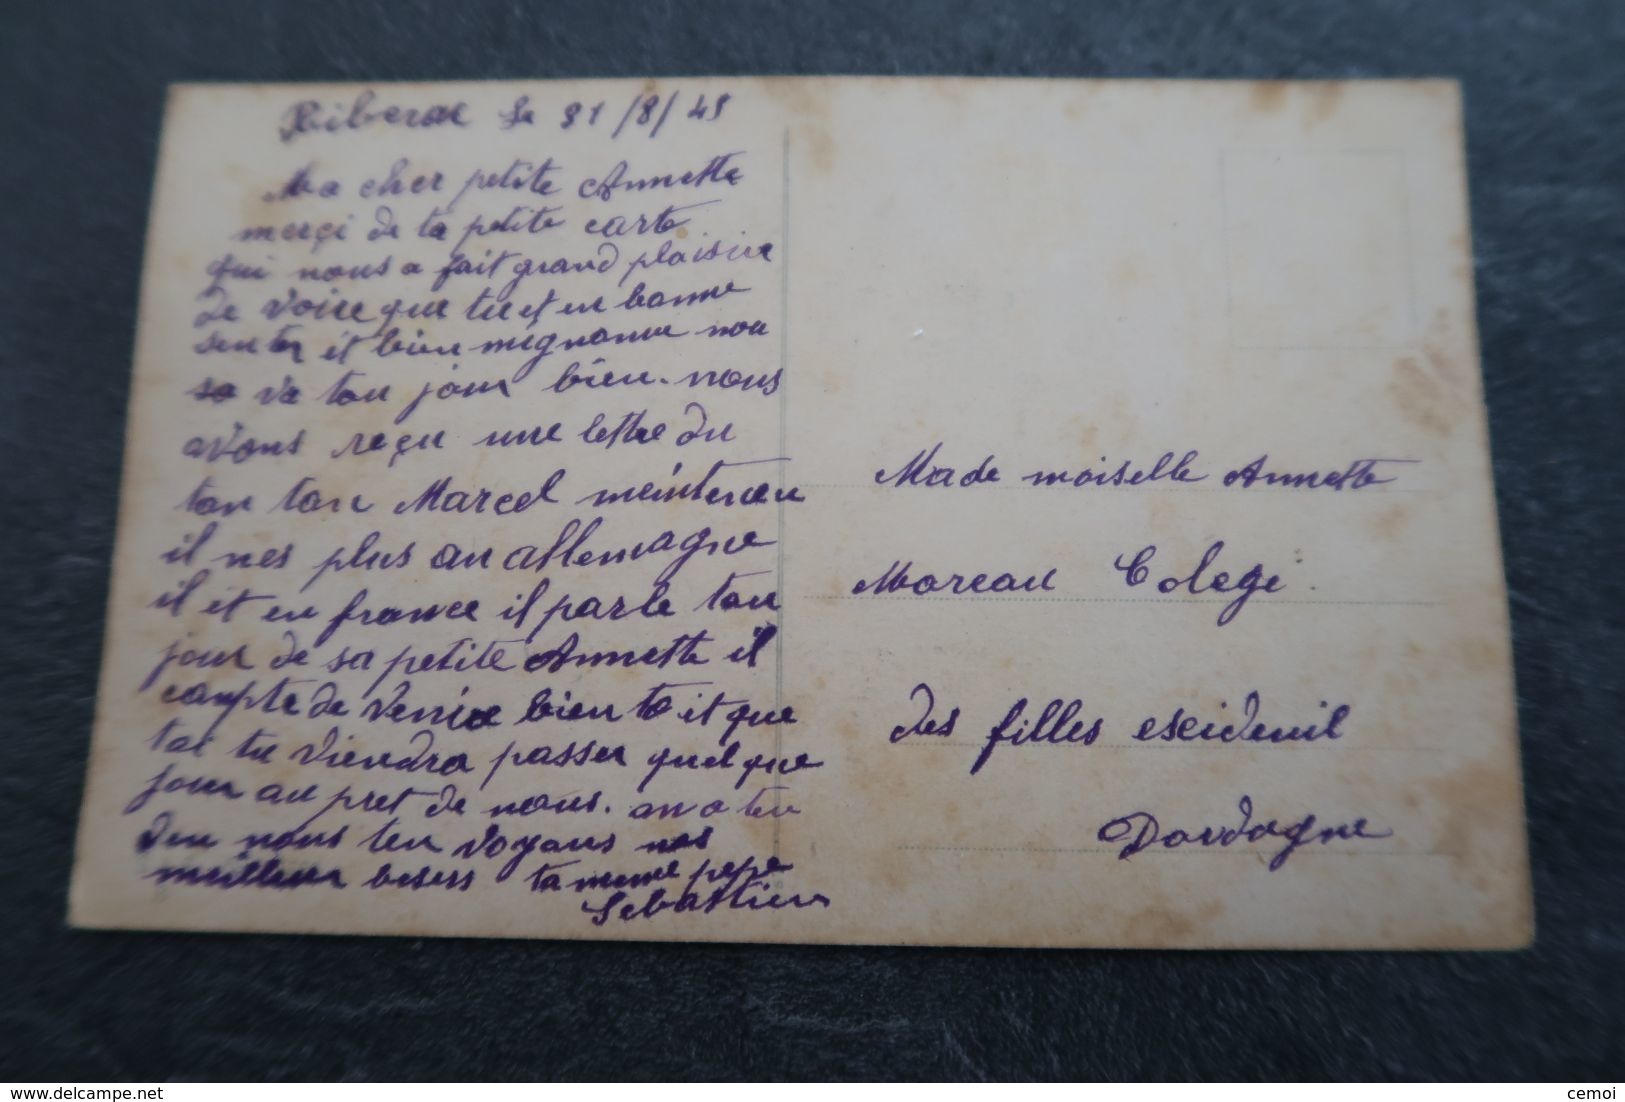 Riberac le 31/8/45
Ma cher petite Annette
merçi de ta petite carte
qui nous a fait grand plaisire
de voire que tu et en bonne
senter et bien mignonne nou
sa va tou jour bien. nous
avons reçu une lettre du
ton ton Marcel meintenen
il nes plus an allemagne
il et en france il parle tou
jour de sa petite Annette il
compte de venire bien to et que
tu viendra passer quel que
jour au pret de nous. an a ten
den nous ten voyons nos
meilleur besers ta meme pepe
Sebastien
Made moiselle Annette
Moreau Colege
des filles exideuil
Dordogne
cemoi